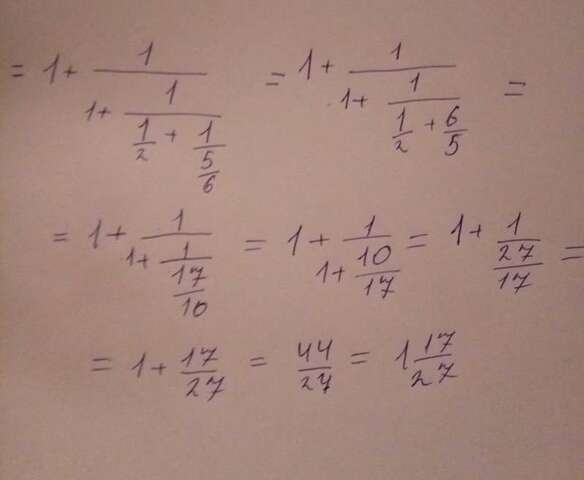 = 1 + \frac{1}{1 + \frac{1}{\frac{1}{2} + \frac{1}{\frac{5}{6}}}} = 1 + \frac{1}{1 + \frac{1}{\frac{1}{2} + \frac{6}{5}}} =
= 1 + \frac{1}{1 + \frac{1}{\frac{17}{10}}} = 1 + \frac{1}{1 + \frac{10}{17}} = 1 + \frac{1}{\frac{27}{17}} =
= 1 + \frac{17}{27} = \frac{44}{27} = 1\frac{17}{27}